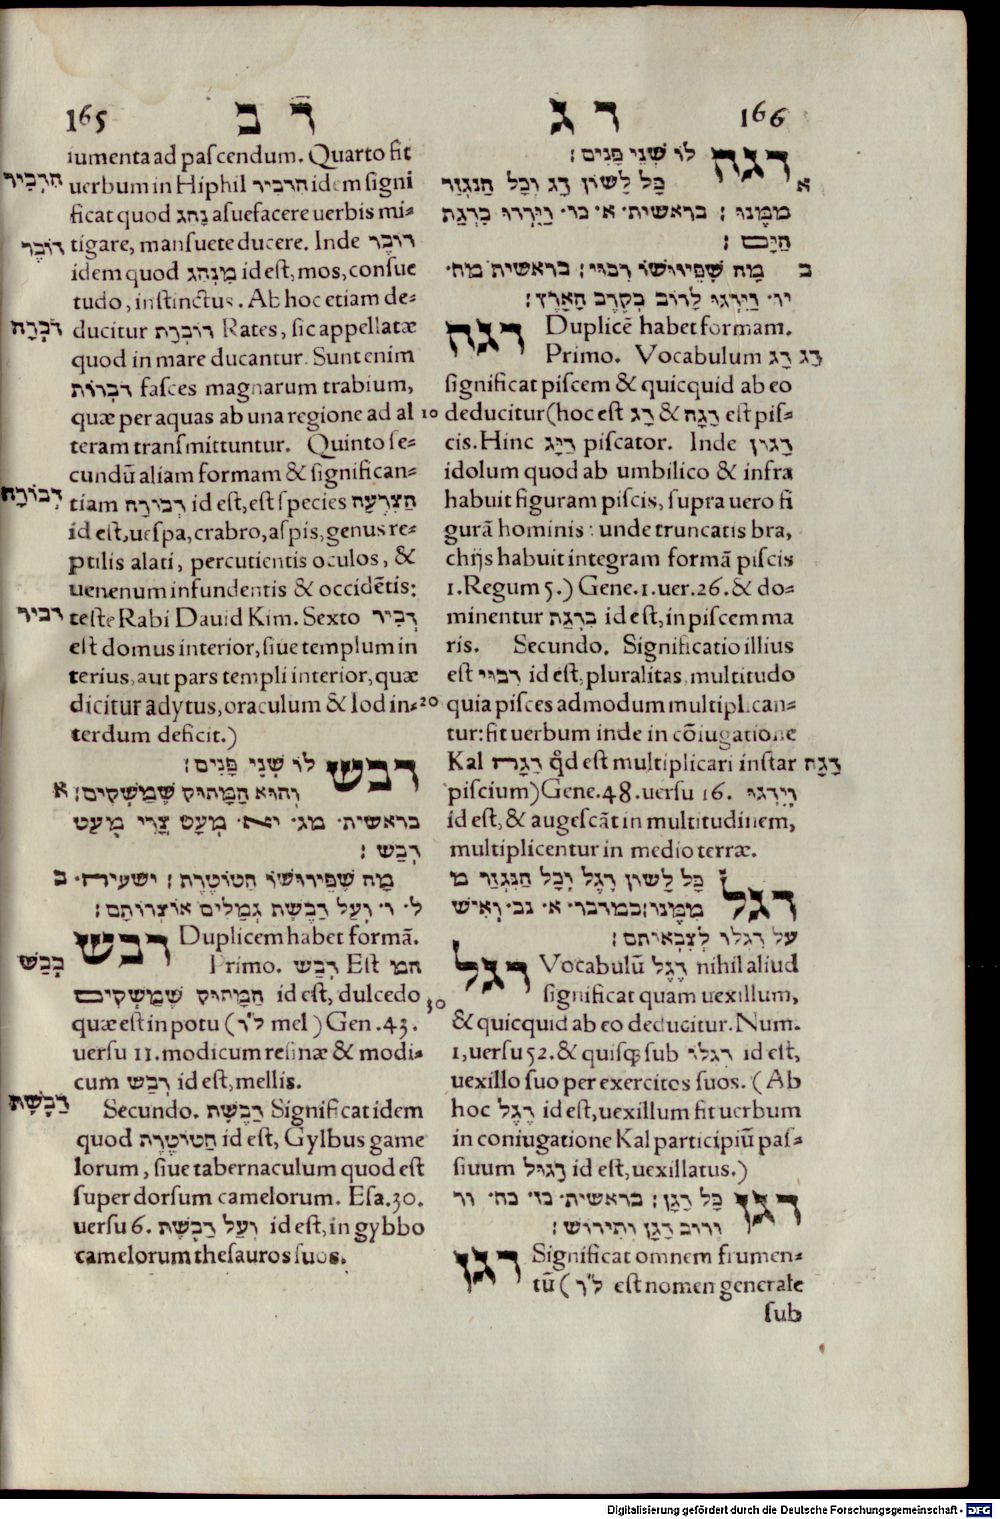 165 ד ב
iumenta ad pascendum. Quarto fit
הִרְבִּיר uerbum in Hiphil הרביר idem signi
ficat quod נָהַג asuefacere uerbis mi-
דוֹבֶר tigare, mansuete ducere. Inde דוֹבֶר
idem quod מִנְהַג id est, mos, consue
tudo, instinctus. Ab hoc etiam de-
דֹּבְרָה ducitur דוֹבְרַת Rates, sic appellatæ
quod in mare ducantur. Sunt enim
דֹבְרוֹת fasces magnarum trabium,
quæ per aquas ab una regione ad al
teram transmittuntur. Quinto se-
cundū aliam formam & significan-
דְּבוֹרָה tiam דְּבוֹרָה id est, est species הַצִרְעָה
id est, uespa, crabro, aspis, genus re-
ptilis alati, percutientis oculos, &
uenenum infundentis & occidētis:
דביר teste Rabi Dauid Kim. Sexto דְּבִיר
est domus interior, siue templum in
terius, aut pars templi interior, quæ
dicitur adytus, oraculum & Iod in-
terdum deficit.)
דבש לוֹ שְׁנֵי פָּנִים:
א וְהוּא הַמָּתוֹק שֶׁמַשְׁקִים:
בראשית. מג. יא. מְעַט צֳרִי מְעַט
דְּבַשׁ:
ב מַה שֶׁפֵּירוּשׁוֹ חַטוֹטֶרֶת: ישעיה.
ל. ו. וְעַל דַּבֶּשֶׁת גְּמַלִּים אוֹצְרוֹתָם:
דבש Duplicem habet formā.
Primo. דְּבַשׁ Est המ
הַמָּתוֹק שֶׁמַשְׁקִים id est, dulcedo
quæ est in potu (ל״ר mel) Gen. 43.
uersu 11. modicum resinæ & modi-
cum דְּבַשׁ id est, mellis.
דַּבֶּשֶׁת Secundo. דַּבֶּשֶׁת Significat idem
quod חַטוֹטֶרֶת id est, Gylbus game
lorum, siue tabernaculum quod est
super dorsum camelorum. Esa. 30.
uersu 6. וְעַל דַּבֶּשֶׁת id est, in gybbo
camelorum thesauros suos.
ד ג 166
דגה לוֹ שְׁנֵי פָּנִים:
א כָּל לָשׁוֹן דָּג וְכָל הַנִגְזַר
מִמֶּנוּ: בראשית. א. כו. וְיִרְדּוּ בִדְגַת
הַיָּם:
ב מַה שֶׁפֵּירוּשׁוֹ רִבּוּי: בראשית מח.
יו. וְיִדְגּוּ לָרוֹב בְּקֶרֶב הָאָרֶץ:
דגה Duplicē habet formam.
Primo. Vocabulum דָּג דָּג
significat piscem & quicquid ab eo
10 deducitur (hoc est דָּג & דָּגָה est pis-
cis. Hinc דַּיָּג piscator. Inde דָּגוֹן
idolum quod ab umbilico & infra
habuit figuram piscis, supra uero fi
gurā hominis: unde truncatis bra,
chijs habuit integram formā piscis
1. Regum 5.) Gene. 1. uer. 26. & do-
minentur בִּדְגַת id est, in piscem ma
ris. Secundo. Significatio illius
est רִבּוּי id est, pluralitas, multitudo
20 quia pisces admodum multiplican-
tur: fit uerbum inde in cōiugatione
Kal דָּגָה qd est multiplicari instar דָּגָה
piscium) Gene. 48. uersu 16. וְיִדְגּוּ
id est, & augescāt in multitudinem,
multiplicentur in medio terræ.
דגל כָּל לָשׁוֹן דֶּגֶל וְכָל הַנִגְזַר מ
מִמֶּנוּ: במדבר. א. נב. וְאִישׁ
עַל דִּגְלוֹ לְצִבְאוֹתָם:
דגל Vocabulū דֶּגֶל nihil aliud
30 significat quam uexillum,
& quicquid ab eo deducitur. Num.
1, uersu 52. & quisq; sub דִגְלוֹ id est,
uexillo suo per exercitos suos. (Ab
hoc דֶּגֶל id est, uexillum fit uerbum
in coniugatione Kal participiū pas-
siuum דָּגוּל id est, uexillatus.)
דגן כָּל דָּגָן: בראשית. כז. כח. ור
וְרוֹב דָּגָן וְתִירוֹשׁ:
דגן Significat omnem frumen-
tū (ל״ר est nomen generale
sub
Digitalisierung gefördert durch die Deutsche Forschungsgemeinschaft - DFG